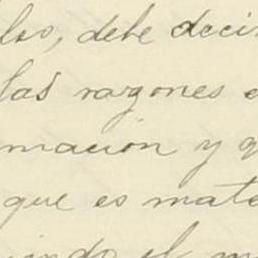 les, debe decir
las razones e
mación y q
que es mate
iendo el m